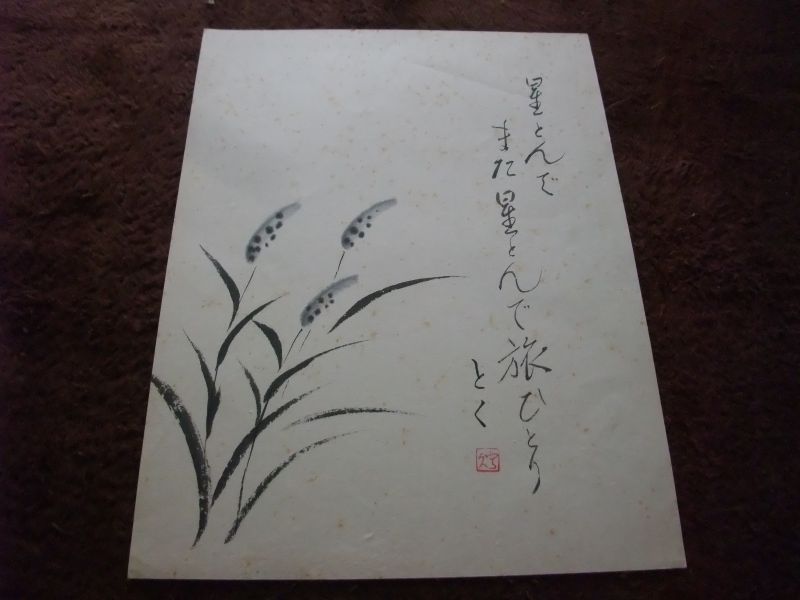 星とんで
また星とんで旅ひとり
とく